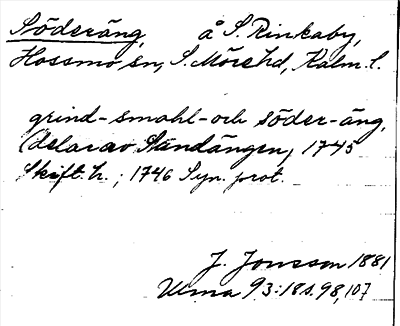 Söderäng, å S. Rinkaby,
Hossmo sn, S. Möre hd, Kalm. l.
grind- smahl- och söder-äng,
(delar av Standängen, 1745
Skift. h.; 1746 Syn. prot.
J. Jonsson 1881
Ulma 93:18 s. 98, 107